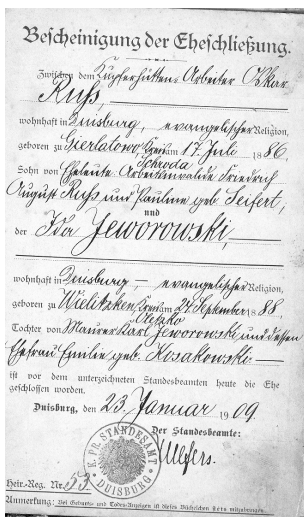 Bescheinigung der Eheschließung.
Zwischen dem Kupferhütten-Arbeiter Oskar
Ruß,
wohnhaft in Duisburg, evangelischer Religion,
geboren zu Gierlatowo, Kreis am 17 Juli 1886
Schroda
Sohn von Eheleute Friedrich
August Ruß und Pauline geb. Seifert,
und
der Ida Jeworowski,
wohnhaft in Duisburg, evangelischer Religion,
geboren zu Wielitzken, Kreis am 24 September 1888,
Oletzko
Tochter von Maurer Karl Jeworowski und dessen
Ehefrau Emilie geb. Kosakowski
ist vor dem unterzeichneten Standesbeamten heute die Ehe
geschlossen worden.
Duisburg, den 23. Januar 1909
Der Standesbeamte:
K. PR. STANDESAMT
DUISBURG
Heir.-Reg. Nr. 53
Anmerkung: Bei Geburts- und Todes-Anzeigen ist dieses Büchelchen stets mitzubringen.